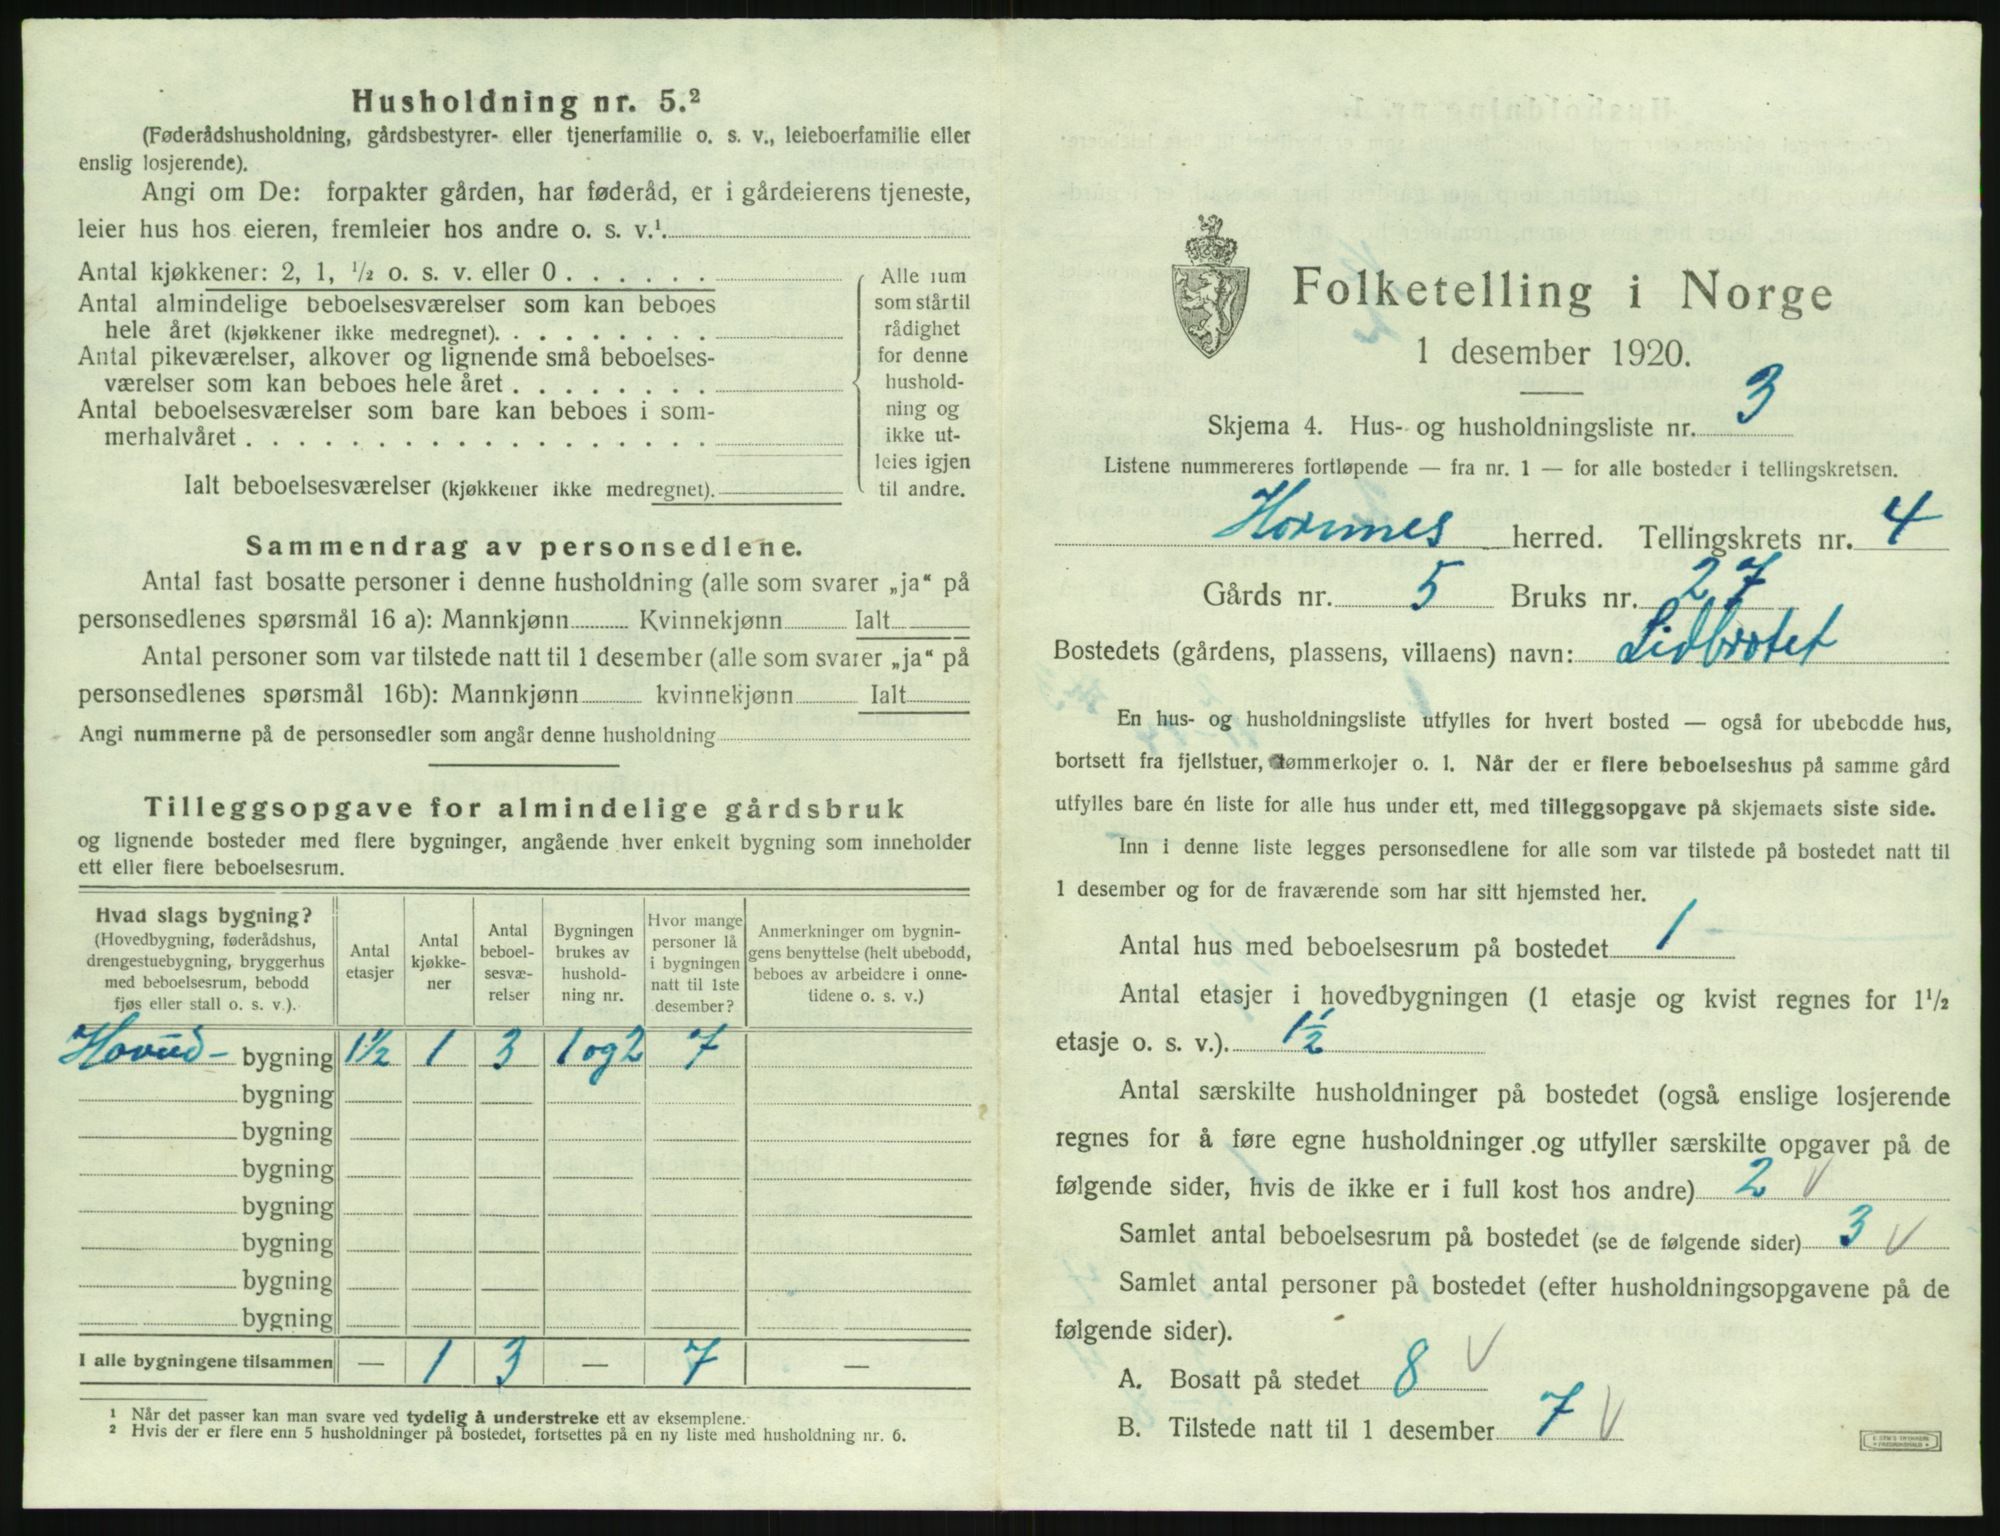 Husholdning nr. 5.²
(Føderådshusholdning, gårdsbestyrer- eller tjenerfamilie o. s. v., leieboerfamilie eller
enslig losjerende).
Angi om De: forpakter gården, har føderåd, er i gårdeierens tjeneste,
leier hus hos eieren, fremleier hos andre o. s. v.¹
Antal kjøkkener: 2, 1, ½ o. s. v. eller 0 . . . . . .
Antal almindelige beboelsesværelser som kan beboes
hele året (kjøkkener ikke medregnet). . . . . . . . .
Antal pikeværelser, alkover og lignende små beboelses-
værelser som kan beboes hele året . . . . . . . .
Antal beboelsesværelser som bare kan beboes i som-
merhalvåret . . . . . . . . . . . . . . . . . .
Ialt beboelsesværelser (kjøkkener ikke medregnet).
Alle rum
som står til
rådighet
for denne
hushold-
ning og
ikke ut-
leies igjen
til andre.
Sammendrag av personsedlene.
Antal fast bosatte personer i denne husholdning (alle som svarer „ja“ på
personsedlenes spørsmål 16 a): Mannkjønn Kvinnekjønn Ialt
Antal personer som var tilstede natt til 1 desember (alle som svarer „ja“ på
personsedlenes spørsmål 16b): Mannkjønn kvinnekjønn Ialt
Angi nummerne på de personsedler som angår denne husholdning
Tilleggsopgave for almindelige gårdsbruk
og lignende bosteder med flere bygninger, angående hver enkelt bygning som inneholder
ett eller flere beboelsesrum.
Hvad slags bygning?
(Hovedbygning, føderådshus,
drengestuebygning, bryggerhus
med beboelsesrum, bebodd
fjøs eller stall o. s. v.).
Antal
etasjer
Antal
kjøkke-
ner
Antal
beboel-
sesvæ-
relser
Bygningen
brukes av
hushold-
ning nr.
Hvor mange
personer lå
i bygningen
natt til 1ste
desember?
Anmerkninger om bygnin-
gens benyttelse (helt ubebodd,
beboes av arbeidere i onne-
tidene o. s. v.)
Hovud- bygning 1½ 1 3 1 og 2 7
bygning
bygning
bygning
bygning
bygning
bygning
bygning
I alle bygningene tilsammen — 1 3 — 7 —
¹ Når det passer kan man svare ved tydelig å understreke ett av eksemplene.
² Hvis der er flere enn 5 husholdninger på bostedet, fortsettes på en ny liste med husholdning nr. 6.
Folketelling i Norge
1 desember 1920.
Skjema 4. Hus- og husholdningsliste nr. 3
Listene nummereres fortløpende — fra nr. 1 — for alle bosteder i tellingskretsen.
Hornnes herred. Tellingskrets nr. 4
Gårds nr. 5 Bruks nr. 27
Bostedets (gårdens, plassens, villaens) navn: Lidbrotet
En hus- og husholdningsliste utfylles for hvert bosted — også for ubebodde hus,
bortsett fra fjellstuer, tømmerkojer o. l. Når der er flere beboelseshus på samme gård
utfylles bare én liste for alle hus under ett, med tilleggsopgave på skjemaets siste side.
Inn i denne liste legges personsedlene for alle som var tilstede på bostedet natt til
1 desember og for de fraværende som har sitt hjemsted her.
Antal hus med beboelsesrum på bostedet 1
Antal etasjer i hovedbygningen (1 etasje og kvist regnes for 1½
etasje o. s. v.). 1½
Antal særskilte husholdninger på bostedet (også enslige losjerende
regnes for å føre egne husholdninger og utfyller særskilte opgaver på de
følgende sider, hvis de ikke er i full kost hos andre) 2 V
Samlet antal beboelsesrum på bostedet (se de følgende sider) 3 V
Samlet antal personer på bostedet (efter husholdningsopgavene på de
følgende sider).
A. Bosatt på stedet 8 V
B. Tilstede natt til 1 desember 7 V